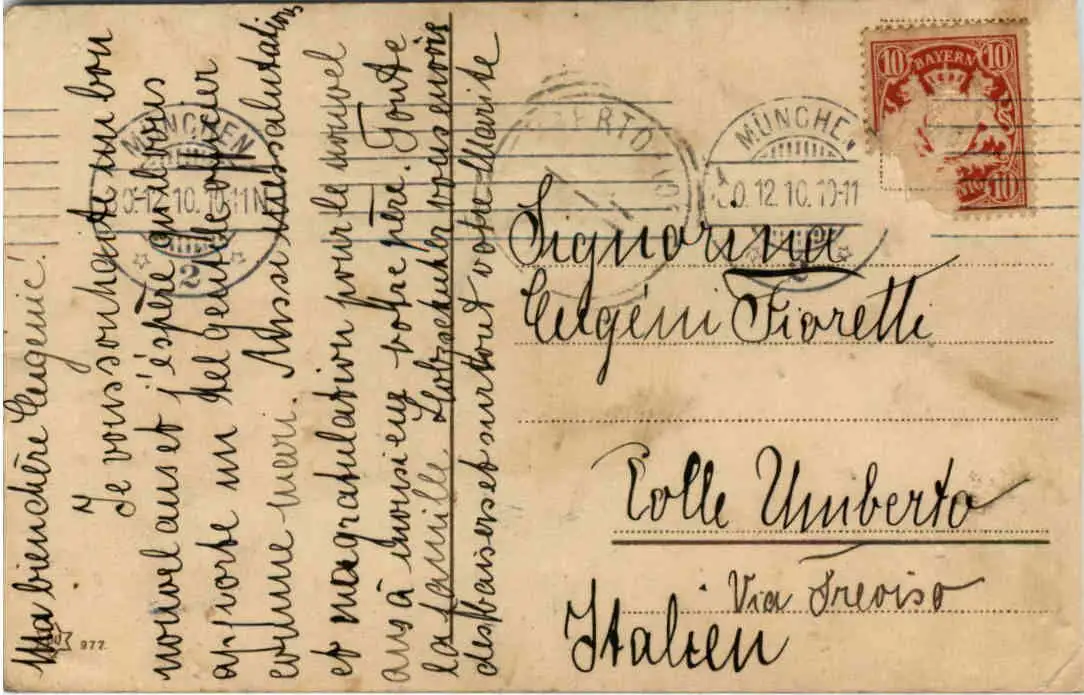 Ma bien chère Eugénie!
Je vous souhaite un bon
nouvel ans et j'éspère qu'il vous
apporte un tel gentil officier
comme mari. Aussi mes salutations
et ma gratulation pour le nouvel
ans à monsieur votre père. Toute
la famille Hotzenthér vous envois
des baisers et surtout votre Marite
MÜNCHEN
30.12.10.10-11N
2
BERTO
MÜNCHEN
30.12.10.10-11
2
10 10
BAYERN
10
Signorina
Eugéni Fioretti
Colle Umberto
Via Treviso
Italien
977